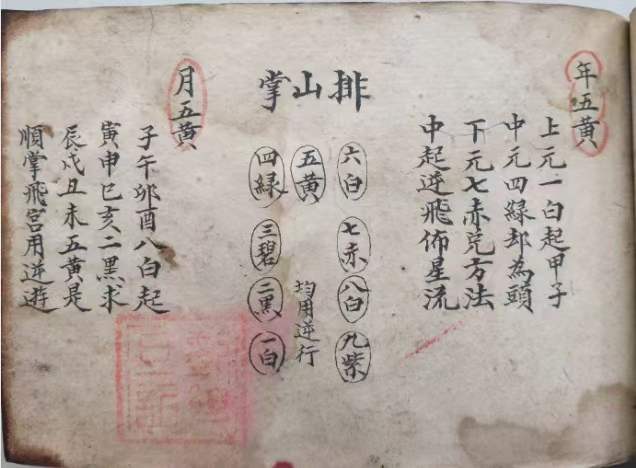 年五黄
上元一白起甲子
中元四緑却為頭
下元七赤兌方法
中起逆飛佈星流
排山掌
六白 七赤 八白 九紫
五黄 均用逆行
四緑 三碧 二黑 一白
月五黄
子午卯酉八白起
寅申巳亥二黑求
辰戌丑未五黄是
順掌飛宮用逆遊